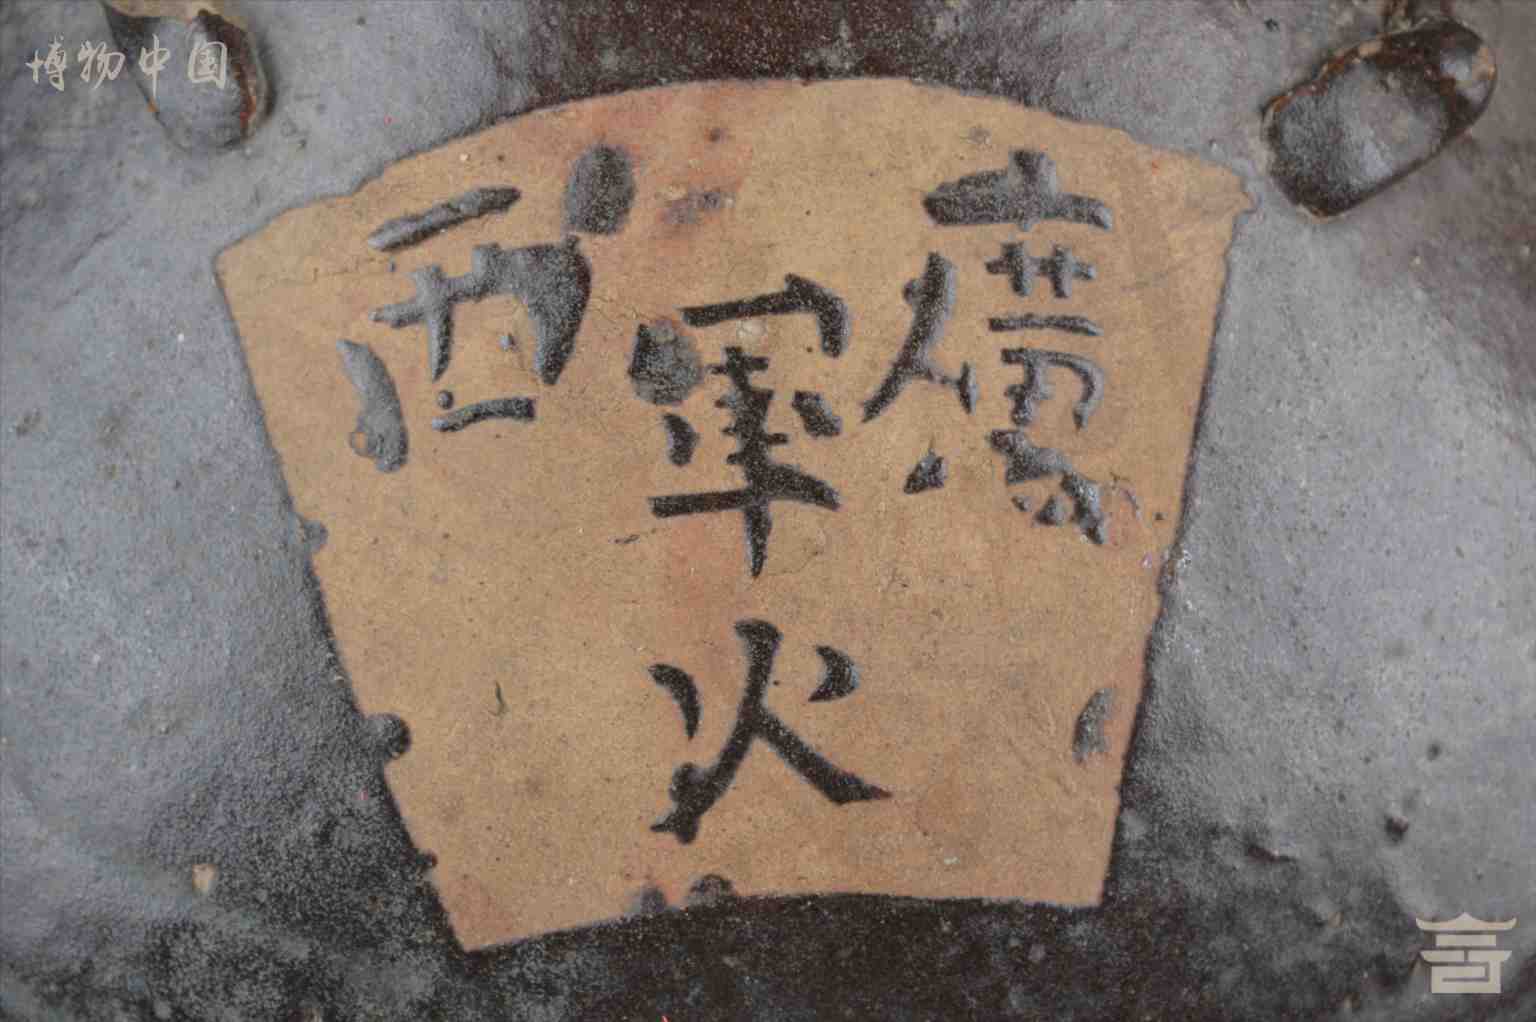 博物中国
廣西
軍火